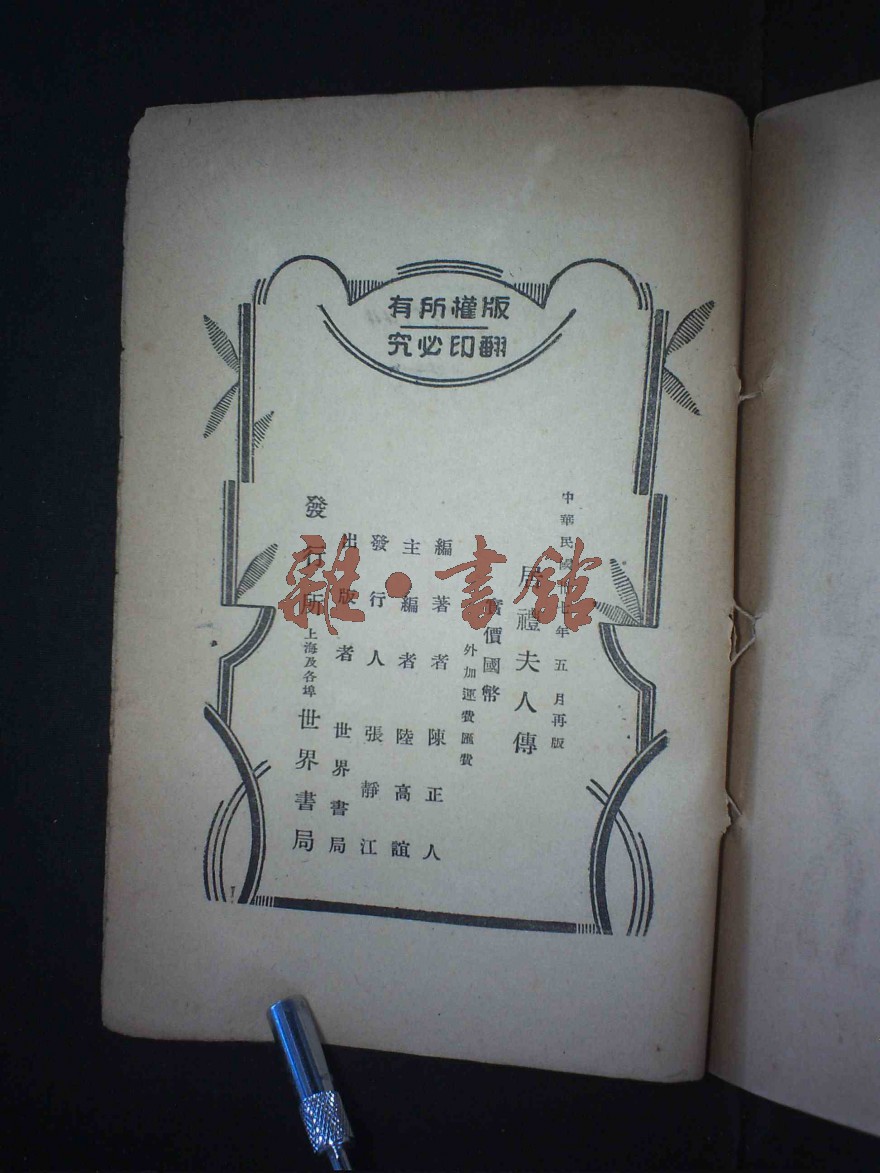 版權所有
翻印必究
中華民國卅七年五月再版
居禮夫人傳
實價國幣
外加運費匯費
編著者 陳正人
主編者 陸高誼
發行人 張靜江
出版者 世界書局
發行所 上海及各埠 世界書局
雜·書館